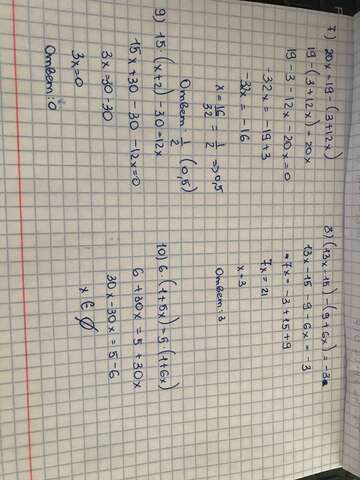 7) 20x = 19 - (3+12x)
19 - (3+12x) = 20x
19 - 3 - 12x - 20x = 0
-32x = -19+3
-32x = -16
x = 16/32 = 1/2 => 0,5
Ответ: 1/2 (0,5)
8) (13x-15) - (9+6x) = -3
13x-15-9-6x = -3
7x = -3+15+9
7x = 21
x = 3
Ответ: 3
9) 15·(x+2) - 30 = 12x
15x + 30 - 30 - 12x = 0
3x = 30 - 30
3x = 0
Ответ: 0
10) 6·(1+5x) = 5·(1+6x)
6 + 30x = 5 + 30x
30x - 30x = 5-6
x ∈ ∅